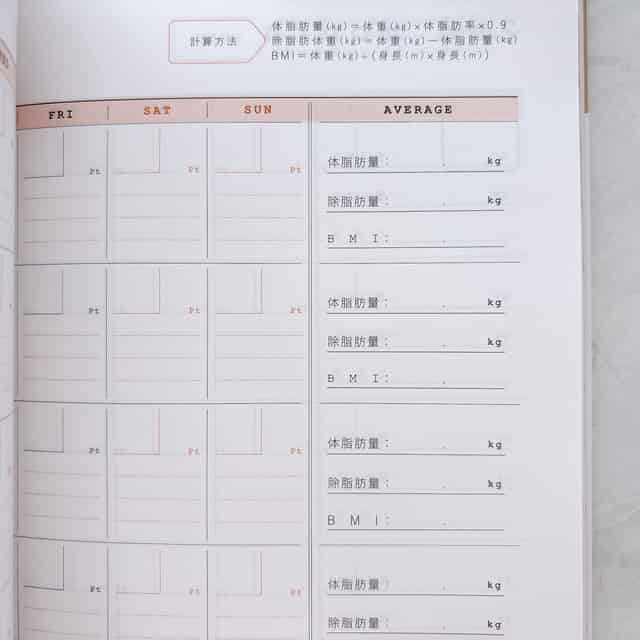 計算方法
体脂肪量(kg)＝体重(kg)×体脂肪率×0.9
除脂肪体重(kg)＝体重(kg)－体脂肪量(kg)
BMI＝体重(kg)÷(身長(m)×身長(m))
FRI SAT SUN AVERAGE
Pt Pt Pt
体脂肪量： . kg
除脂肪量： . kg
BMI： .
Pt Pt Pt
体脂肪量： . kg
除脂肪量： . kg
BMI： .
Pt Pt Pt
体脂肪量： . kg
除脂肪量： . kg
BMI： .
Pt Pt Pt
体脂肪量： . kg
除脂肪量： . kg